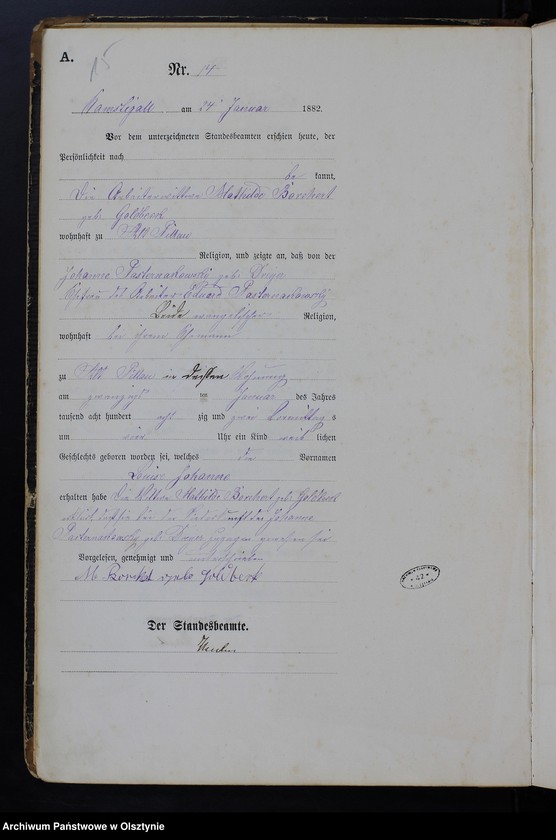 A.
15
Nr. 14
am 24 Januar 1882.
Vor dem unterzeichneten Standesbeamten erschien heute, der
Persönlichkeit nach
be kannt,
Die Arbeiterwittwe Mathilde Borchert
geb. Goldberk
wohnhaft zu Alt Pillau
Religion, und zeigte an, daß von der
Johanne Pasternakowsky geb.
Ehefrau des Arbeiter Eduard Pasternakowsky
Beide evangelischer Religion,
wohnhaft bei ihrem Ehemann
zu Alt Pillau in dessen Wohnung
am zwanzigst ten Januar des Jahres
tausend acht hundert acht zig und zwei Vormittag s
um vier Uhr ein Kind weib lichen
Geschlechts geboren worden sei, welches die Vornamen
Louise Johanne
erhalten habe Die Wittwe Mathilde Borchert geb. Goldberk
erklärt, daß sie bei der Niederkunft der Johanne
Pasternakowsky geb. zugegen gewesen sei
Vorgelesen, genehmigt und unterschrieben
M Borchd gebe Goldberk
Der Standesbeamte.
42
Archiwum Państwowe w Olsztynie